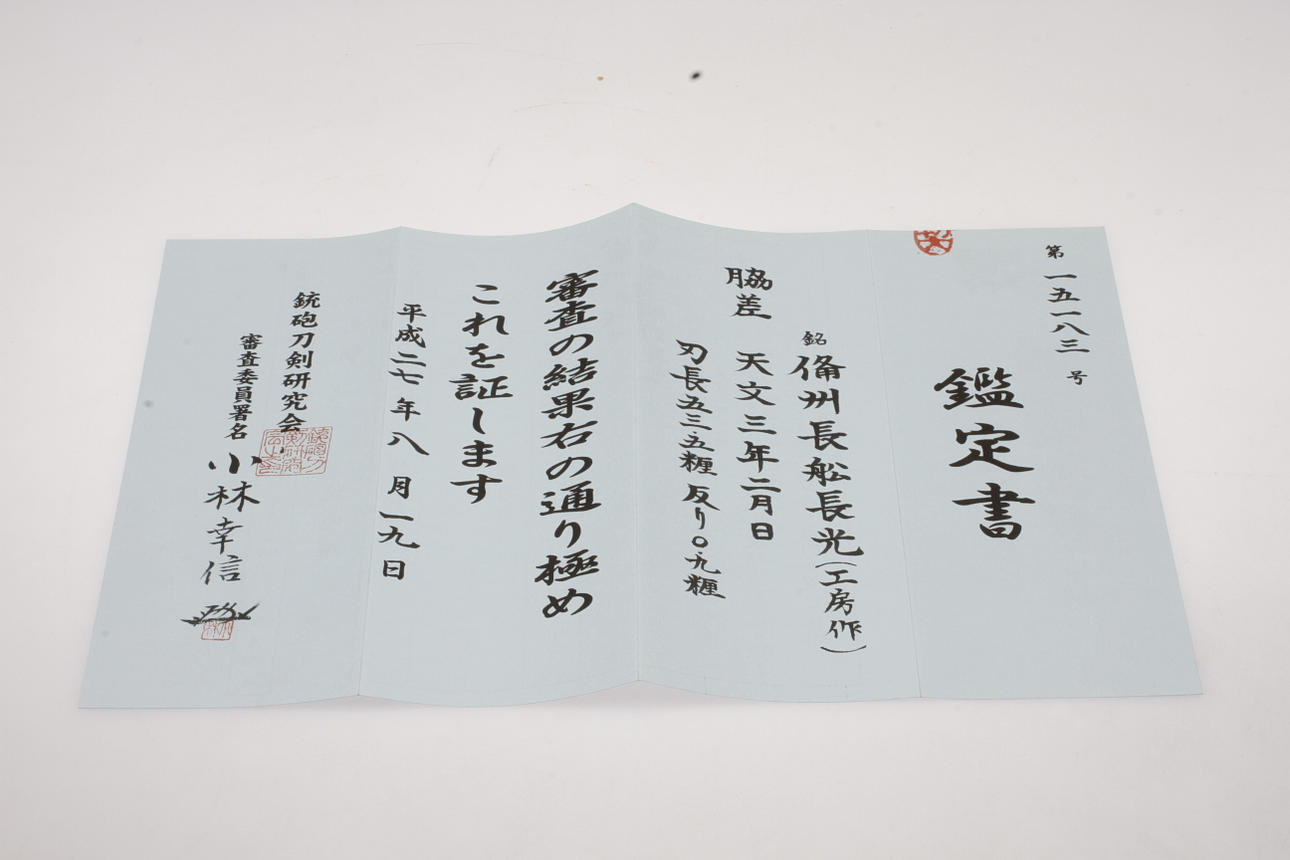 第一五一八三号
鑑定書
銘 備州長舩長光(工房作)
脇差 天文三年二月日
刃長五三.五糎 反り〇.九糎
審査の結果右の通り極め
これを証します
平成二七年八月一九日
銃砲刀剣研究会
審査委員署名 小林幸信